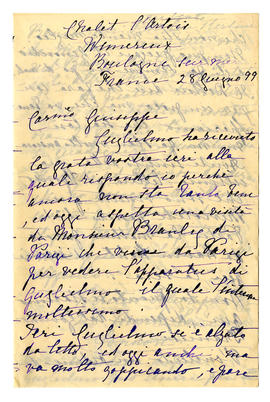 Chalet l'Artois
Wimereux
Boulogne sur mer
France 28 Giugno 99
Carmo Giuseppe
Guglielmo ha ricevuto
la grata vostra ieri alla
quale rispondo io perché
ancora non sta tanto bene
, ed oggi aspetta una visita
di Monsieur Branley di
Parigi che viene da Parigi
per vedere l'apparatus di
Guglielmo il quale
moltissimo.
Ieri Guglielmo si è alzato
da letto, ed oggi anche ma
va molto zoppicando, e pare